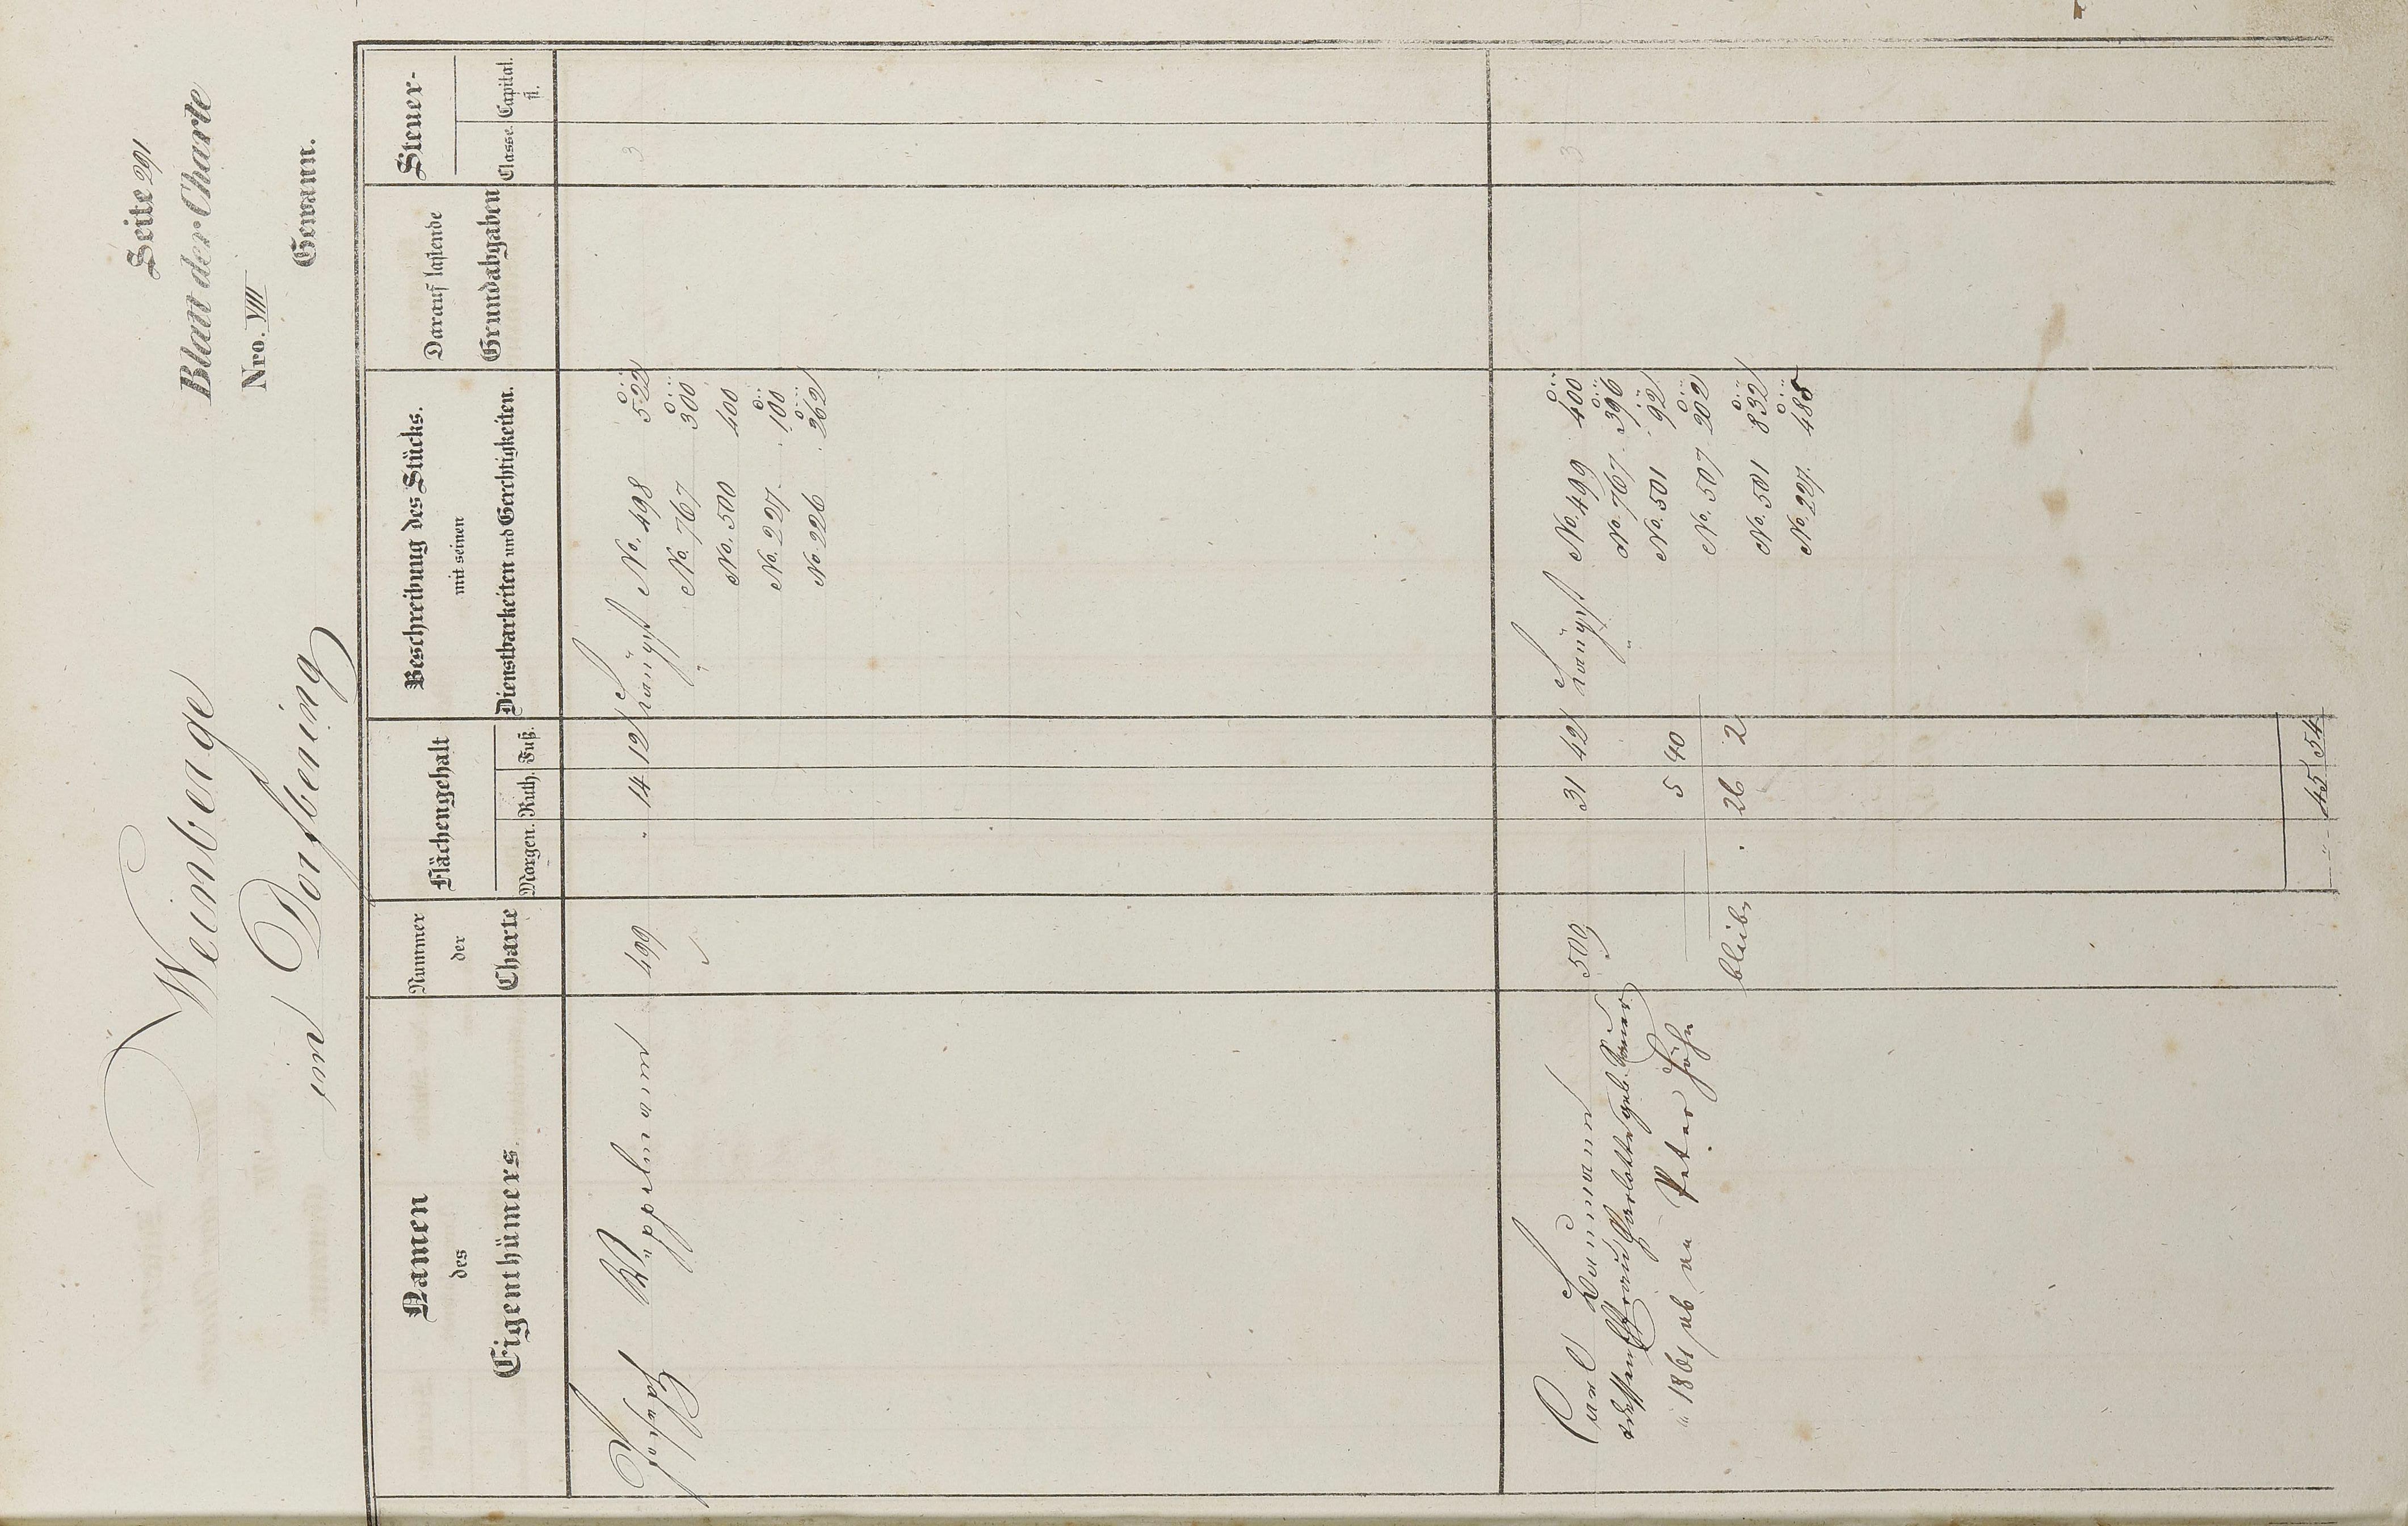 Seite 291
Weinberge
Blatt der Charte
Nro. VIII
im Dorfbering
Gewann.
Namen
des
Eigenthümers.
Nummer
der
Charte
Flächengehalt
Morgen. Ruth. Fuß.
Beschreibung des Stücks.
mit seinen
Dienstbarkeiten und Gerechtigkeiten.
Darauf lastende
Grundabgaben
Steuer-
Classe. Capital.
fl.
499 14 12 No. 498 522 3
No. 767 300
No. 500 400
No. 227 100
No 226 262
Carl 500 31 42 No. 499 400 3
dessen Frau geb. No. 767 396
1861 ab an Peter Höhn 5 40 No. 501 92
No. 507 202
bleibt 26 2
No. 501 832
No. 227 488
45 54